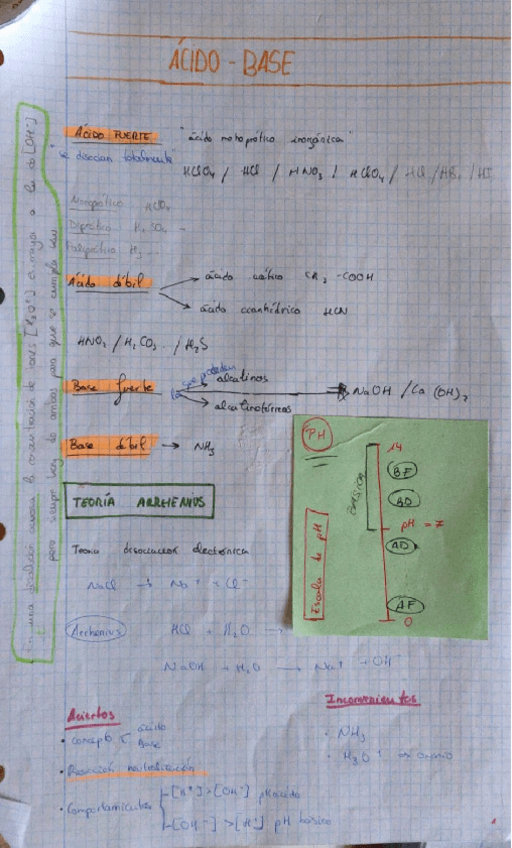 ÁCIDO - BASE
ÁCIDO FUERTE "ácido monoprótico inorgánico"
"se disocian totalmente"
HClO4 / HCl / HNO3 / HClO4 / HCl / HBr / HI
Monoprótico HClO4
Diprótico
Poliprótico H3 ...
Ácido débil → ácido acético CH3-COOH
→ ácido cianhídrico HCN
HNO2 / H2CO3 / H2S
Base fuerte alcalinos → NaOH / Ca(OH)2
alcalinotérreos
Base débil → NH3
PH
14
BF
BD
pH = 7
AD
AF
0
Escala de pH
TEORÍA ARRHENIUS
Teoría disociación electrónica
NaCl → Na+ + Cl-
Arrhenius HCl + H2O →
NaOH + H2O → Na+ + OH-
Aciertos
• concepto ácido
Base
• Reacción neutralización
• Comportamientos [H+]>[OH-] pH ácido
[OH-]>[H+] pH básico
Inconvenientes
- NH3
- H3O+
En una disolución acuosa la concentración de iones [H3O+] es mayor a la de [OH-]
para siempre hay de ambos para que se cumpla